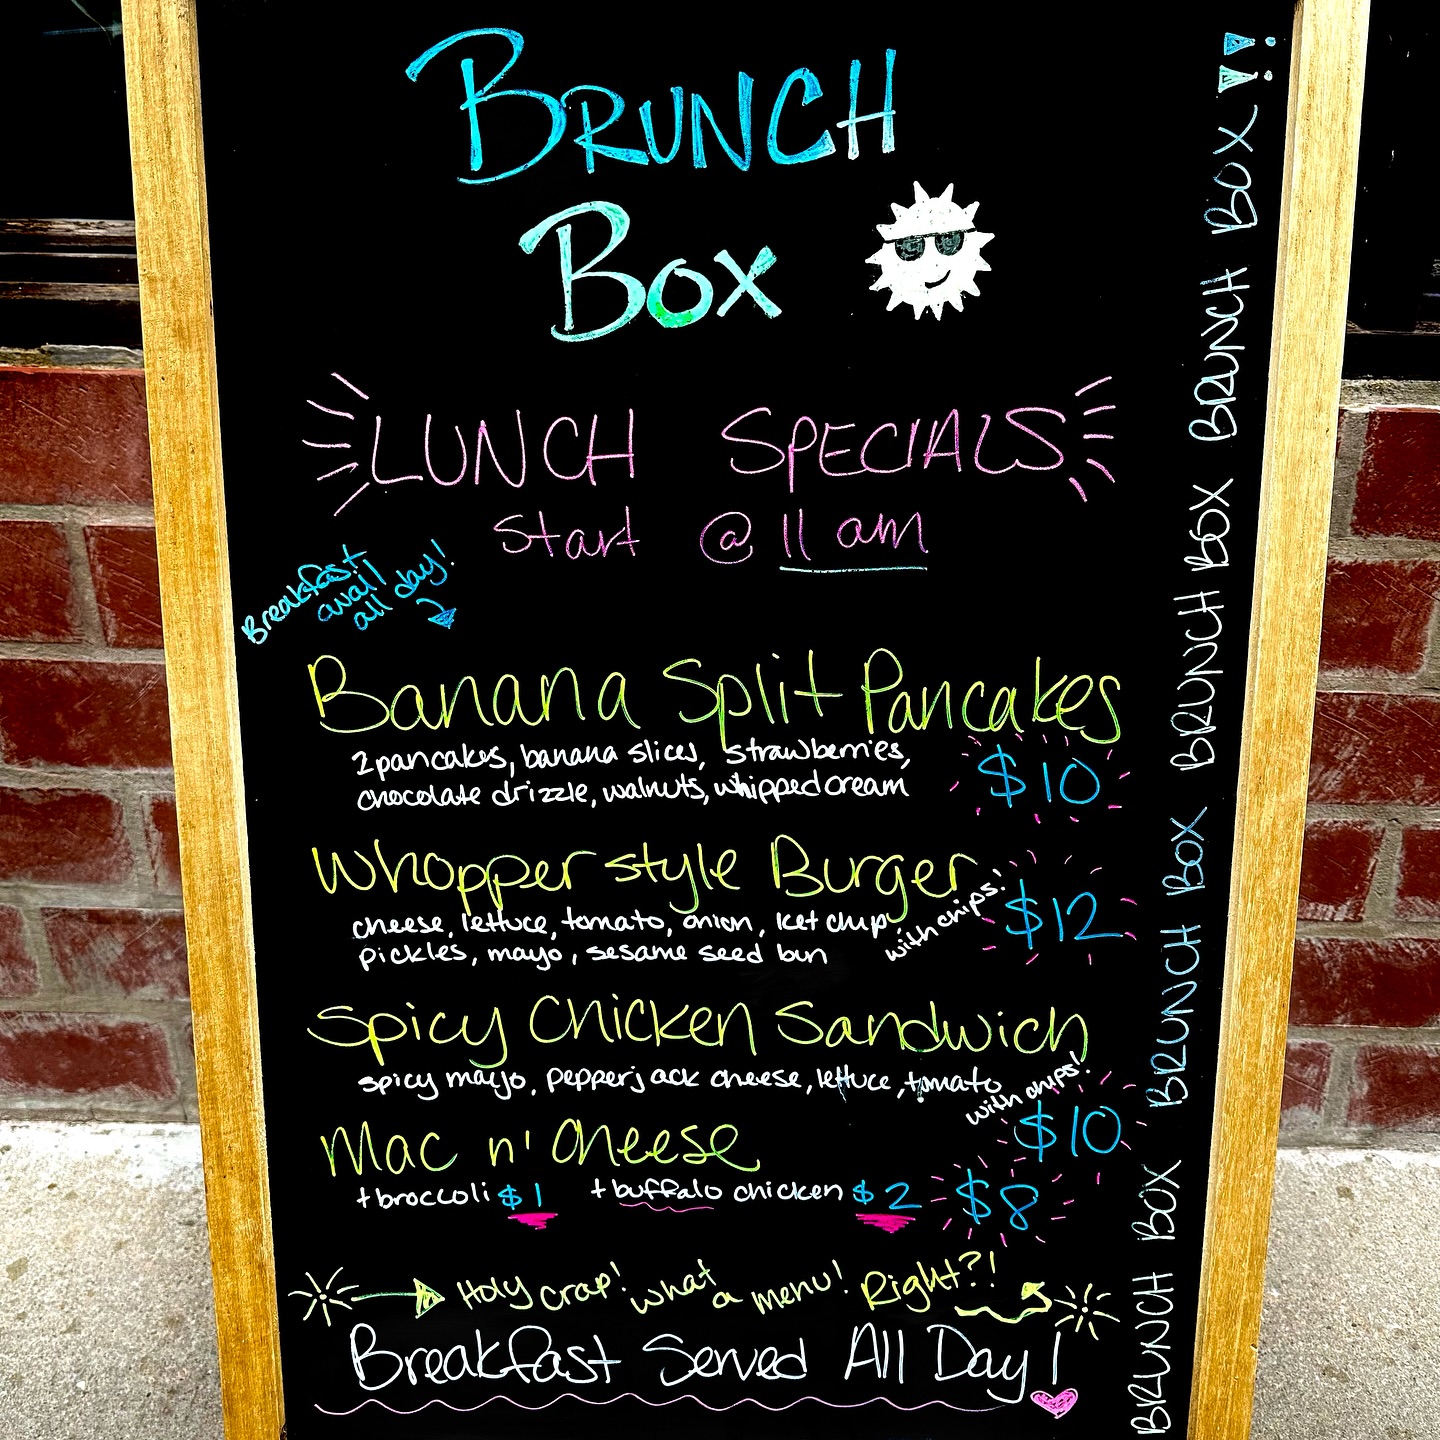 BRUNCH
BOX
LUNCH SPECIALS
Start @ 11 am
Breakfast
avail
all day!
Banana Split Pancakes
2 pancakes, banana slices, strawberries,
chocolate drizzle, walnuts, whipped cream
$10
Whopper style Burger
cheese, lettuce, tomato, onion, ketchup
pickles, mayo, sesame seed bun
with chips!
$12
Spicy Chicken Sandwich
spicy mayo, pepperjack cheese, lettuce, tomato
with chips!
$10
Mac n' Cheese
+broccoli $1 +buffalo chicken $2
$8
Holy crap! what a menu! Right?!
Breakfast Served All Day!
BRUNCH BOX BRUNCH BOX BRUNCH BOX BRUNCH BOX!!